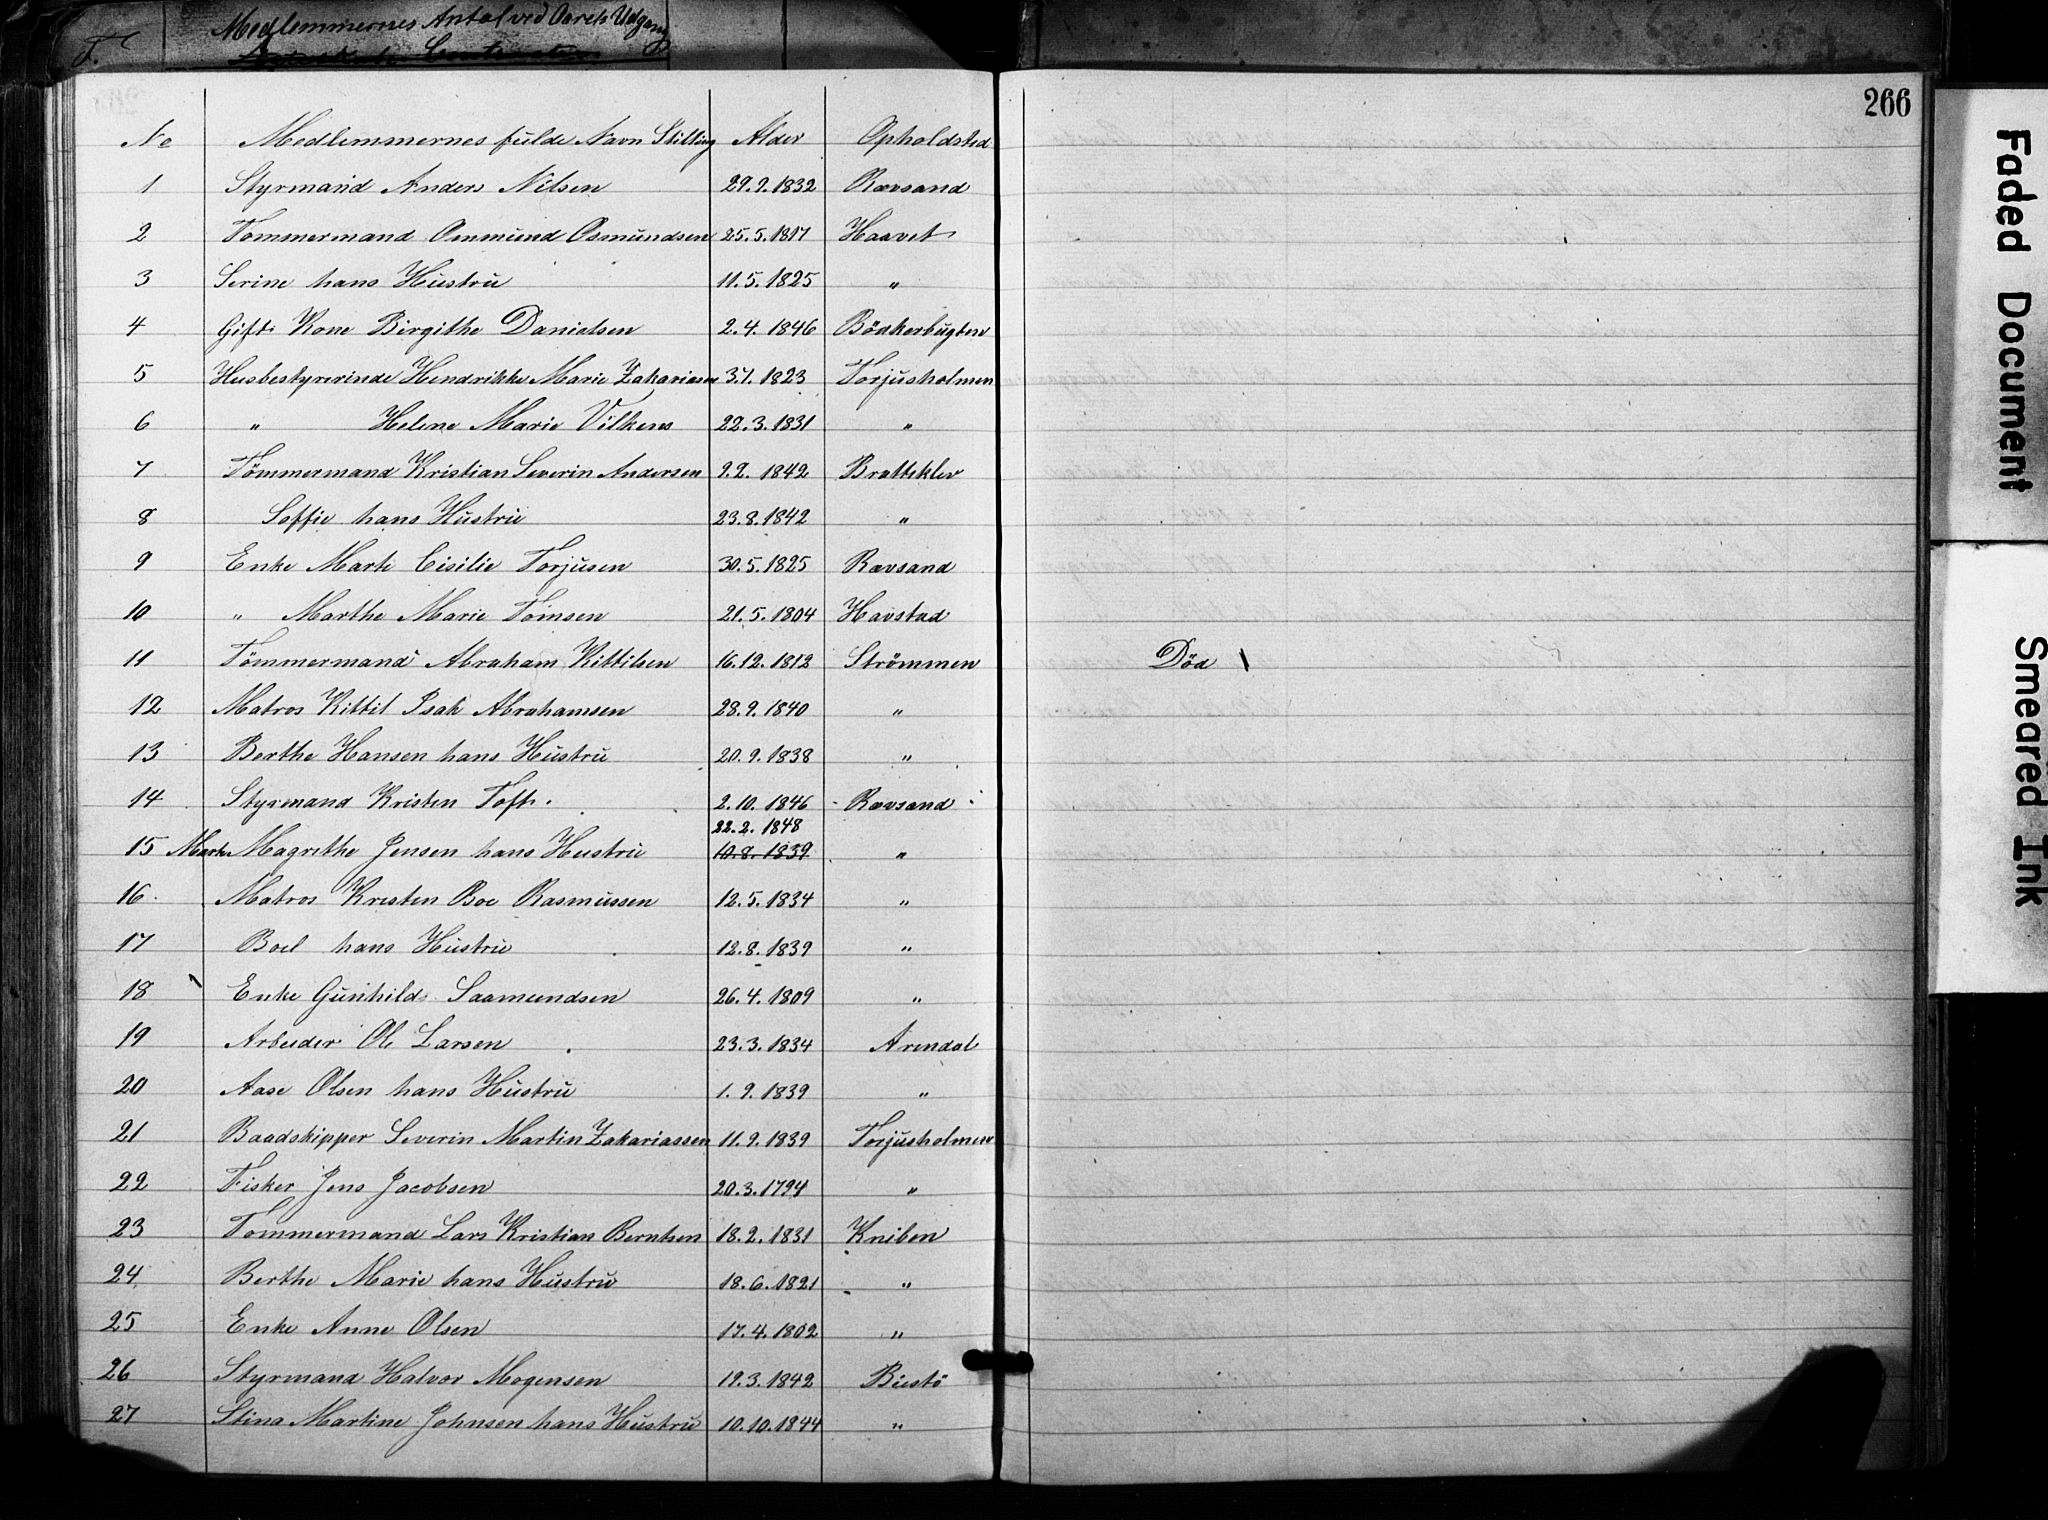 F.
Medlemmernes Antal ved Aarets Udgang
266
No Medlemmernes fulde Navn Stilling Alder Opholdsted
1 Styrmand Anders Nilsen 29.9.1832 Rævsand
2 Tømmermand Ommund Osmundsen 25.5.1817 Haavet
3 Serine hans Hustru 11.5.1825 "
4 Gift Kone Birgithe Danielsen 2.4.1846 Bödkerbugten
5 Husbestyrerinde Hendrikke Marie Zakariasen 3.1.1823 Torjusholmen
6 " Helene Marie Vilkens 22.3.1831 "
7 Tömmermand Kristian Severin Andersen 9.2.1842 Bratteklev
8 Soffie hans Hustru 23.8.1842 "
9 Enke Marte Cisilie Torjusen 30.5.1825 Rævsand
10 " Marthe Marie Tomsen 21.5.1804 Havstad
11 Tömmermand Abraham Kittilsen 16.12.1812 Strömmen Död
12 Matros Kittil Isak Abrahamsen 28.9.1840 "
13 Berthe Hansen hans Hustru 20.9.1838 "
14 Styrmand Kristen Toft. 2.10.1846 Rævsand
22.2.1848
15 Marthe Magrethe Jensen hans Hustru 10.8.1839 "
16 Matros Kristen Boe Rasmussen 12.5.1834 "
17 Boel hans Hustru 12.8.1839 "
18 Enke Gunhild Saamundsen 26.4.1809 "
19 Arbeider Ole Larsen 23.3.1834 Arendal
20 Aase Olsen hans Hustru 1.9.1839 "
21 Baadskipper Severin Martin Zakariassen 11.9.1839 Torjusholmen
22 Fisker Jens Jacobsen 20.3.1794 "
23 Tommermand Lars Kristian Berntsen 18.2.1831 Kniben
24 Berthe Marie hans Hustru 18.6.1821 "
25 Enke Anne Olsen 17.4.1802 "
26 Styrmand Halvor Mogensen 19.3.1842 Buestö
27 Stina Martine Johnsen hans Hustru 10.10.1844 "
Faded Document
Smeared Ink